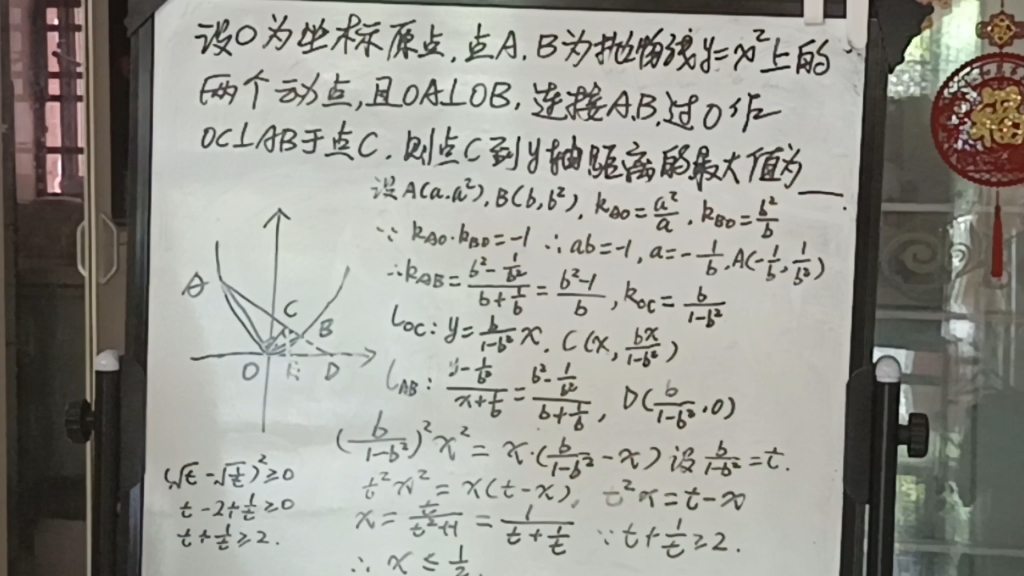 设O为坐标原点,点A、B为抛物线y=x²上的
两个动点,且OA⊥OB,连接A、B,过O作
OC⊥AB于点C,则点C到y轴距离的最大值为___.
设A(a,a²),B(b,b²), k_AO=a²/a, k_BO=b²/b
∵ k_AO·k_BO=-1 ∴ab=-1, a=-1/b, A(-1/b, 1/b²)
∴k_AB=(b²-1/b²)/(b+1/b)=(b²-1)/b, k_OC=b/(1-b²)
L_OC: y=b/(1-b²) x. C(x, bx/(1-b²))
L_AB: (y-1/b²)/(x+1/b)=(b²-1/b²)/(b+1/b), D(b/(1-b²),0)
(b/(1-b²))²x²=x·(b/(1-b²)-x) 设b/(1-b²)=t.
t²x²=x(t-x), t²x=t-x
x=t/(t²+1)=1/(t+1/t) ∵t+1/t≥2.
∴ x≤1/2.
(√t-√(1/t))²≥0
t-2+1/t≥0
t+1/t≥2.
A
C
B
O
E
D
福